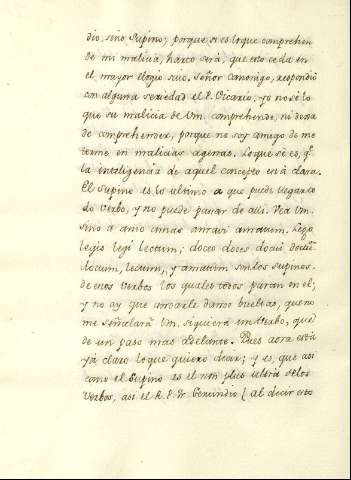 dio, sino Supino; porque si es lo que comprehen
de mi malicia, harto será, que esto ceda en
el mayor elogio suo. Señor canonigo, respondió
con alguna seriedad el P. Vicario, yo no sé lo
que su malicia de Vm. comprehende, ni dexa
de comprehender, porque no soy amigo de me
terme en malicias agenas. Lo que sé es, q.e
la inteligencia de aquel concepto está clara.
El Supino es lo ultimo a que puede llegar to
do verbo, y no puede pasar de alli. Vea Vm.
sino a amo amas amavi amatum. Lego
legis legi lectum; doceo doces docui doctũ
doctum, lectum, y amatum son los supinos
de esos verbos los quales todos paran en el;
y no ay que andarle dando bueltas, que no
me señalará Vm. siquiera un verbo, que
dé un paso mas adelante. Pues aora está
yá claro lo que quiero decir; y es, que asi
como el Supino es el non plus ultra de los
verbos, asi el R. P. Fr. Gerundio (al decir esto